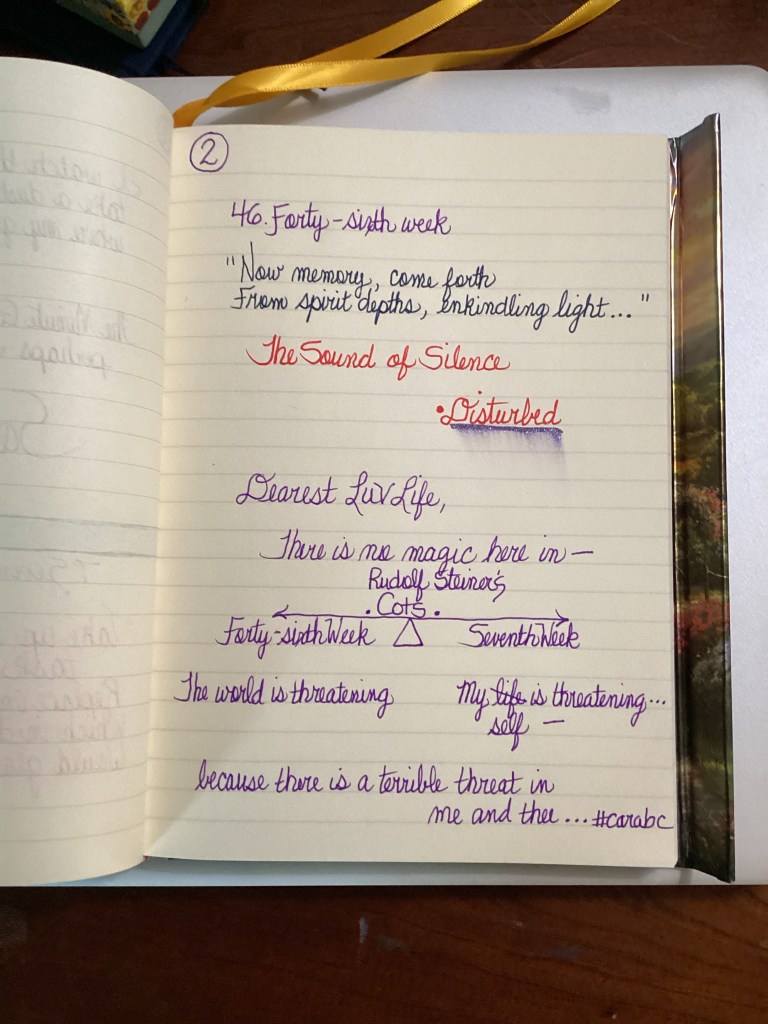 2
46. Forty-sixth week
"Now memory, come forth
From spirit depths, enkindling light..."
The Sound of Silence
•Disturbed
Dearest LuvLife,
There is no magic here in—
Rudolf Steiner's
.Cots.
Forty-sixth Week Seventh Week
The world is threatening My life is threatening...
self —
because there is a terrible threat in
me and thee ... #carabc